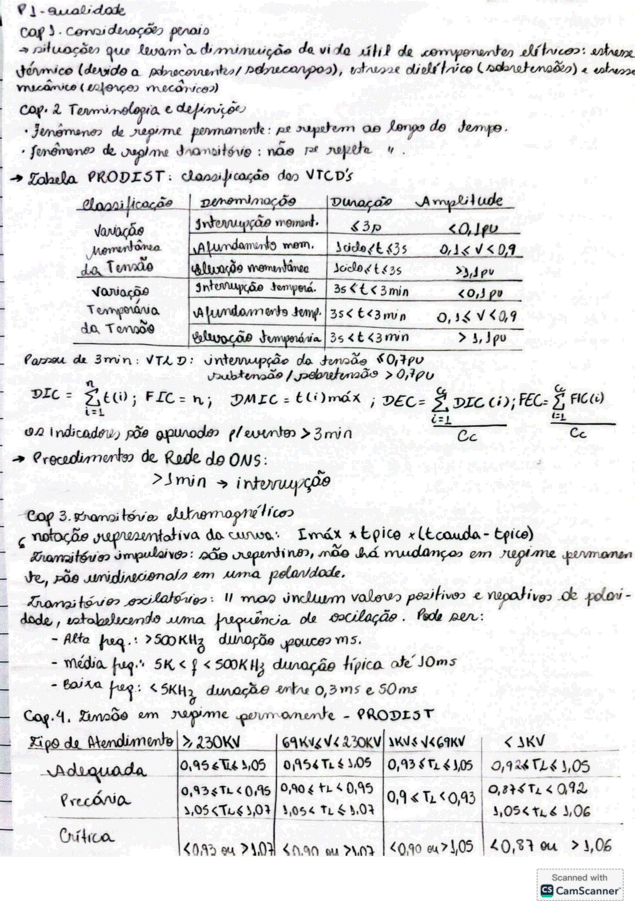 P1 - qualidade
Cap 1. Considerações gerais
→ situações que levam a diminuição da vida útil de componentes elétricos: estresse
térmico (devido a sobrecorrentes/sobrecargas), estresse dielétrico (sobretensões) e estresse
mecânico (esforços mecânicos)
Cap. 2 Terminologia e definições
· Fenômenos de regime permanente: se repetem ao longo do tempo.
· Fenômenos de regime transitório: não se repete "
→ Tabela PRODIST: classificação das VTCD's
Classificação Denominação Duração Amplitude
Variação Momentânea da Tensão
Interrupção moment. ≤ 3s <0,1pu
Afundamento mom. 1ciclo≤t≤3s 0,1≤V<0,9
Elevação momentânea 1ciclo≤t≤3s >1,1pu
Variação Temporária da Tensão
Interrupção temporá. 3s<t<3min <0,1pu
Afundamento temp. 3s<t<3min 0,1≤V<0,9
Elevação temporária 3s<t<3min >1,1pu
Passou de 3min: VTLD: interrupção da tensão ≤0,7pu
subtensão/sobretensão >0,7pu
DIC = n∑i=1 t(i); FIC = n; DMIC = t(i)máx; DEC = Cc∑i=1 DIC(i)/Cc; FEC = Cc∑i=1 FIC(i)/Cc
os Indicadores são apurados p/eventos >3min
→ Procedimentos de Rede do ONS:
>1min → interrupção
Cap 3. Transitórios eletromagnéticos
notação representativa da curva: Imáx x tpico x (tcauda-tpico)
Transitórios impulsivos: são repentinos, não há mudanças em regime permanen
te, são unidirecionais em uma polaridade.
Transitórios oscilatórios: " mas incluem valores positivos e negativos de polari-
dade, estabelecendo uma frequência de oscilação. Pode ser:
- Alta freq.: >500KHz duração poucos ms.
- Média freq.: 5K<f<500KHz duração típica até 10ms
- Baixa freq: <5KHz duração entre 0,3ms e 50ms
Cap.4. Tensão em regime permanente - PRODIST
Tipo de Atendimento ≥230KV 69KV≤V<230KV 1KV≤V<69KV <1KV
Adequada 0,95≤TL≤1,05 0,95≤TL≤1,05 0,93≤TL≤1,05 0,92≤TL≤1,05
Precária 0,93≤TL<0,95 0,90≤TL<0,95 0,9≤TL<0,93 0,87≤TL<0,92
1,05<TL≤1,07 1,05<TL≤1,07 1,05<TL≤1,06
Crítica <0,93 ou >1,07 <0,90 ou >1,07 <0,90 ou >1,05 <0,87 ou >1,06
Scanned with
CS CamScanner